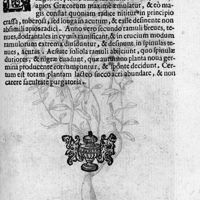 apios Græcorum maxime æmulatur, & eò ma-
gis constat quoniam radice nititur in principio
crassa, tuberosa, sed longa in acutum, & esse desinente non
absimili apios radici. Anno vero secundo ramuli breves, te-
nues, dodrantales in cymis ramificant, & in crucem modum
ramulorum extrema dividuntur, & desinunt in spinulas te-
nues, acutas. Aestate foliola ramuli abjiciunt, quo spinulæ
duriores, & rigeæ euadunt, quæ autumno planta nova ger-
mina producente corrumpuntur, & sponte decidunt. Cer-
tum est totam plantam lacteo succo acri abundare, & non
carere facultate purgatoria.